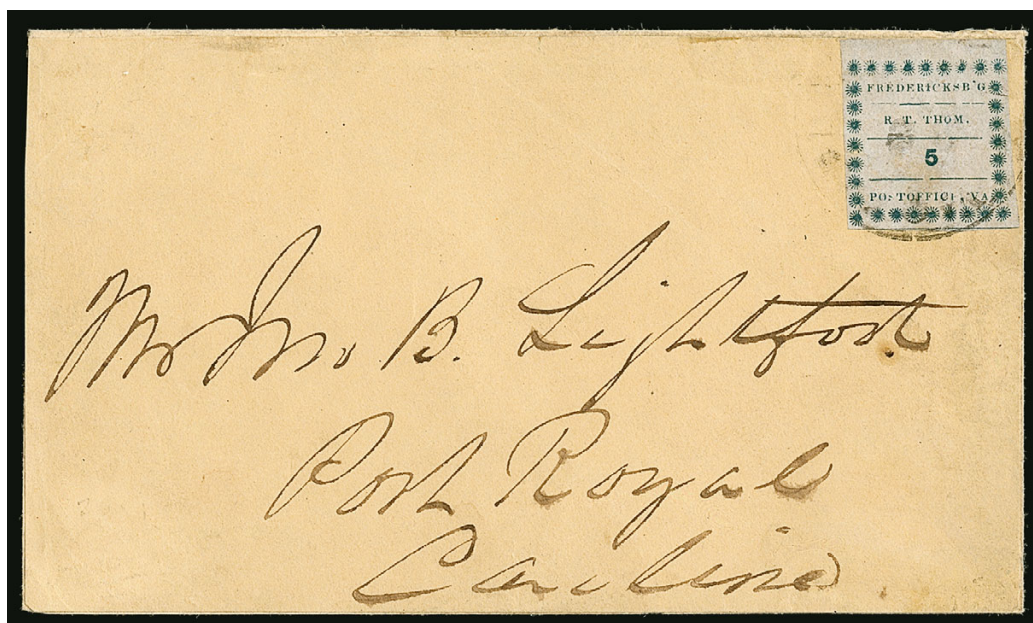 FREDERICKSB'G
R. T. THOM.
5
POSTOFFICE, VA
Mr Jno B. Lightfoot
Port Royal
Caroline